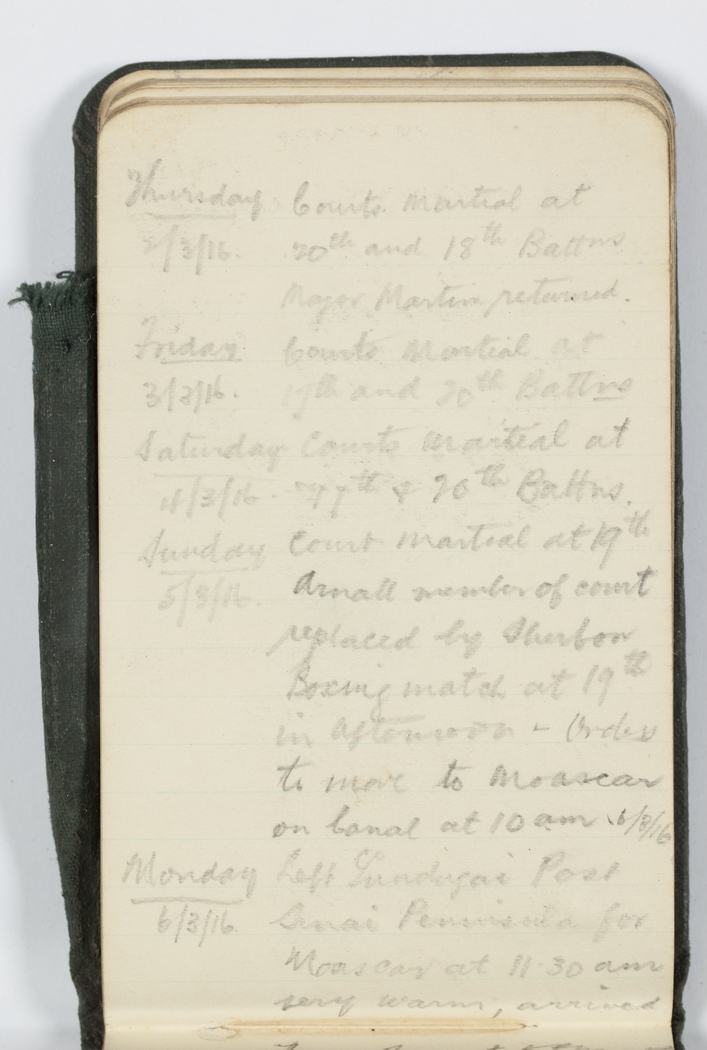 Thursday Courts Martial at
2/3/16. 20th and 18th Battns
Major Martin returned.
Friday Courts Martial at
3/3/16. and 20th Battns
Saturday Courts Martial at
4/3/16. & 20th Battns.
Sunday Court Martial at 19th
5/3/16. Arnall member of court
replaced by Sherbon
Boxing match at 19th
in afternoon - Orders
to move to Moascar
on Canal at 10 am 6/3/16
Monday Left Post
6/3/16 Sinai Peninsula for
Moascar at 11.30 am
very warm, arrived